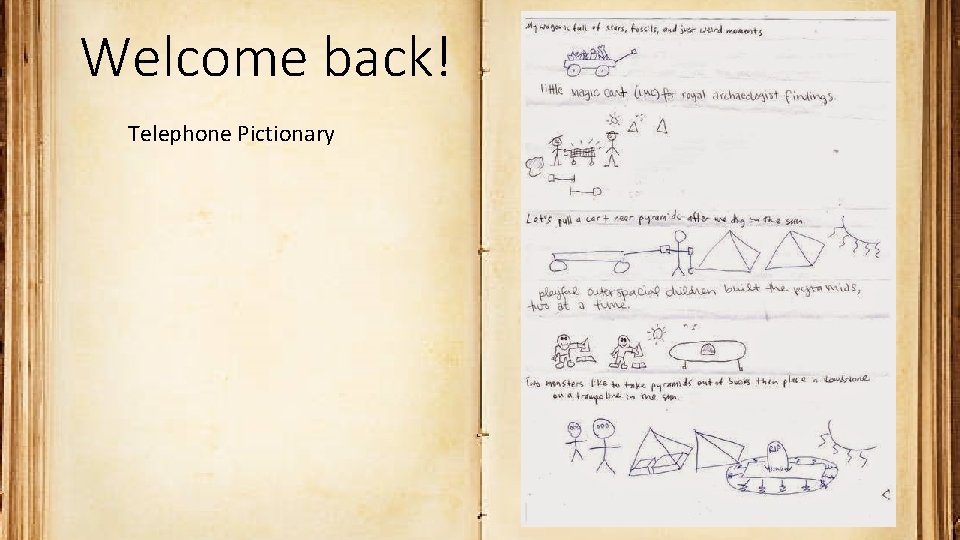 Welcome back!
Telephone Pictionary
My wagon is full of stars, fossils, and just weird moments
little magic cart (LMC) for royal archaeologist findings.
Let's pull a cart near pyramids after we dig in the sun
playful outerspacial children built the pyramids,
two at a time.
Two monsters like to take pyramids out of books then place a tombstone
on a trampoline in the sun.
RIP